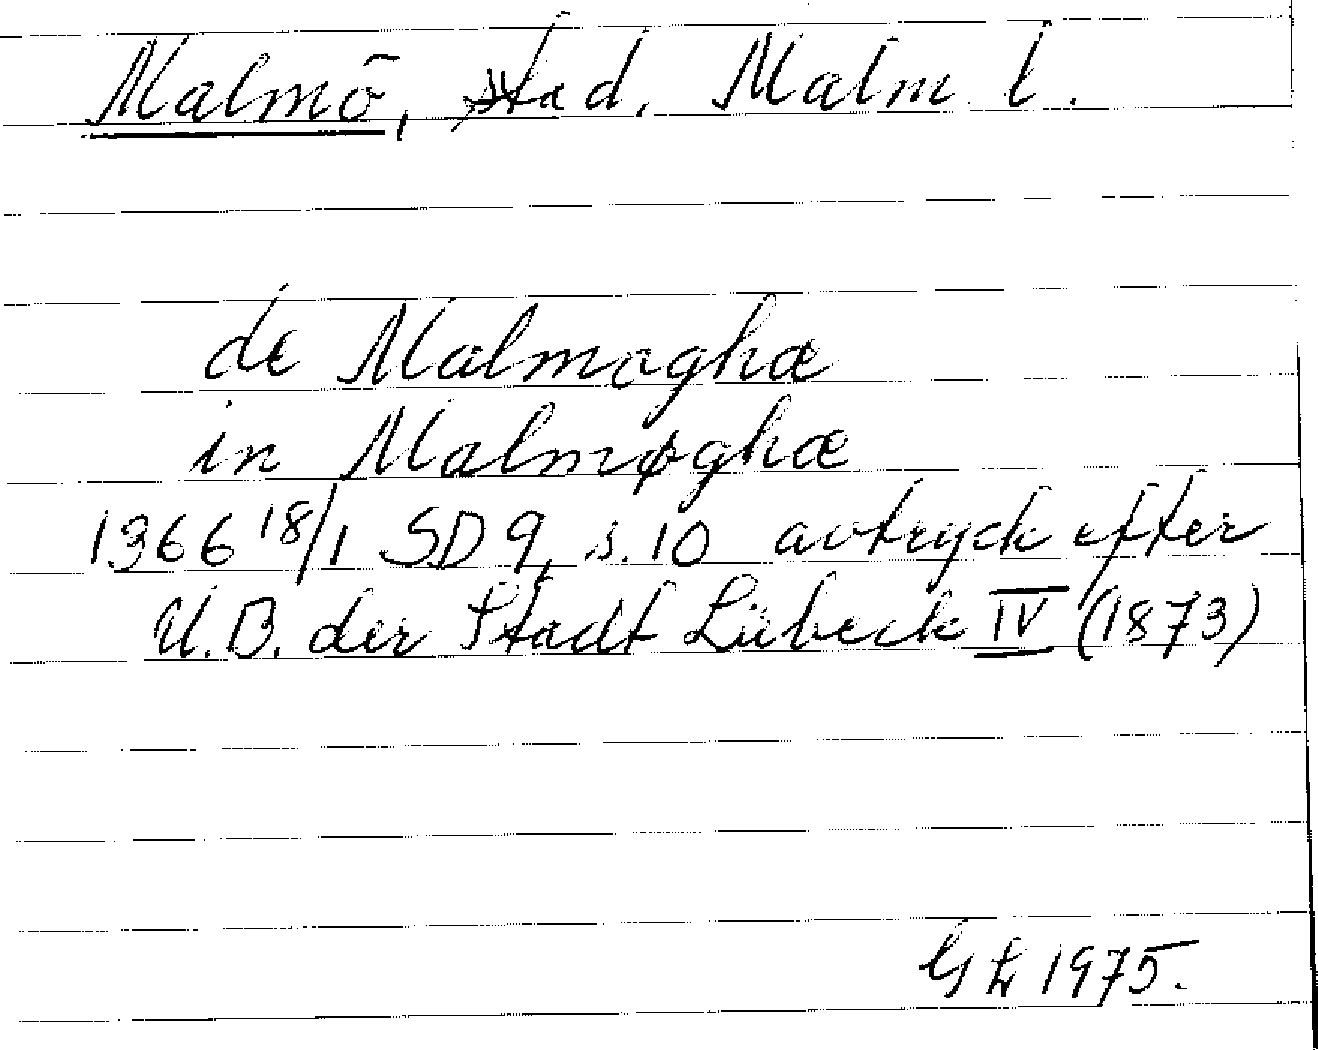 Malmö, stad. Malm. l.
de Malmoghæ
in Malmøghæ
1366 18/1 SD 9, s. 10 avtryck efter
U.B. der Stadt Lübeck IV (1873)
1975.